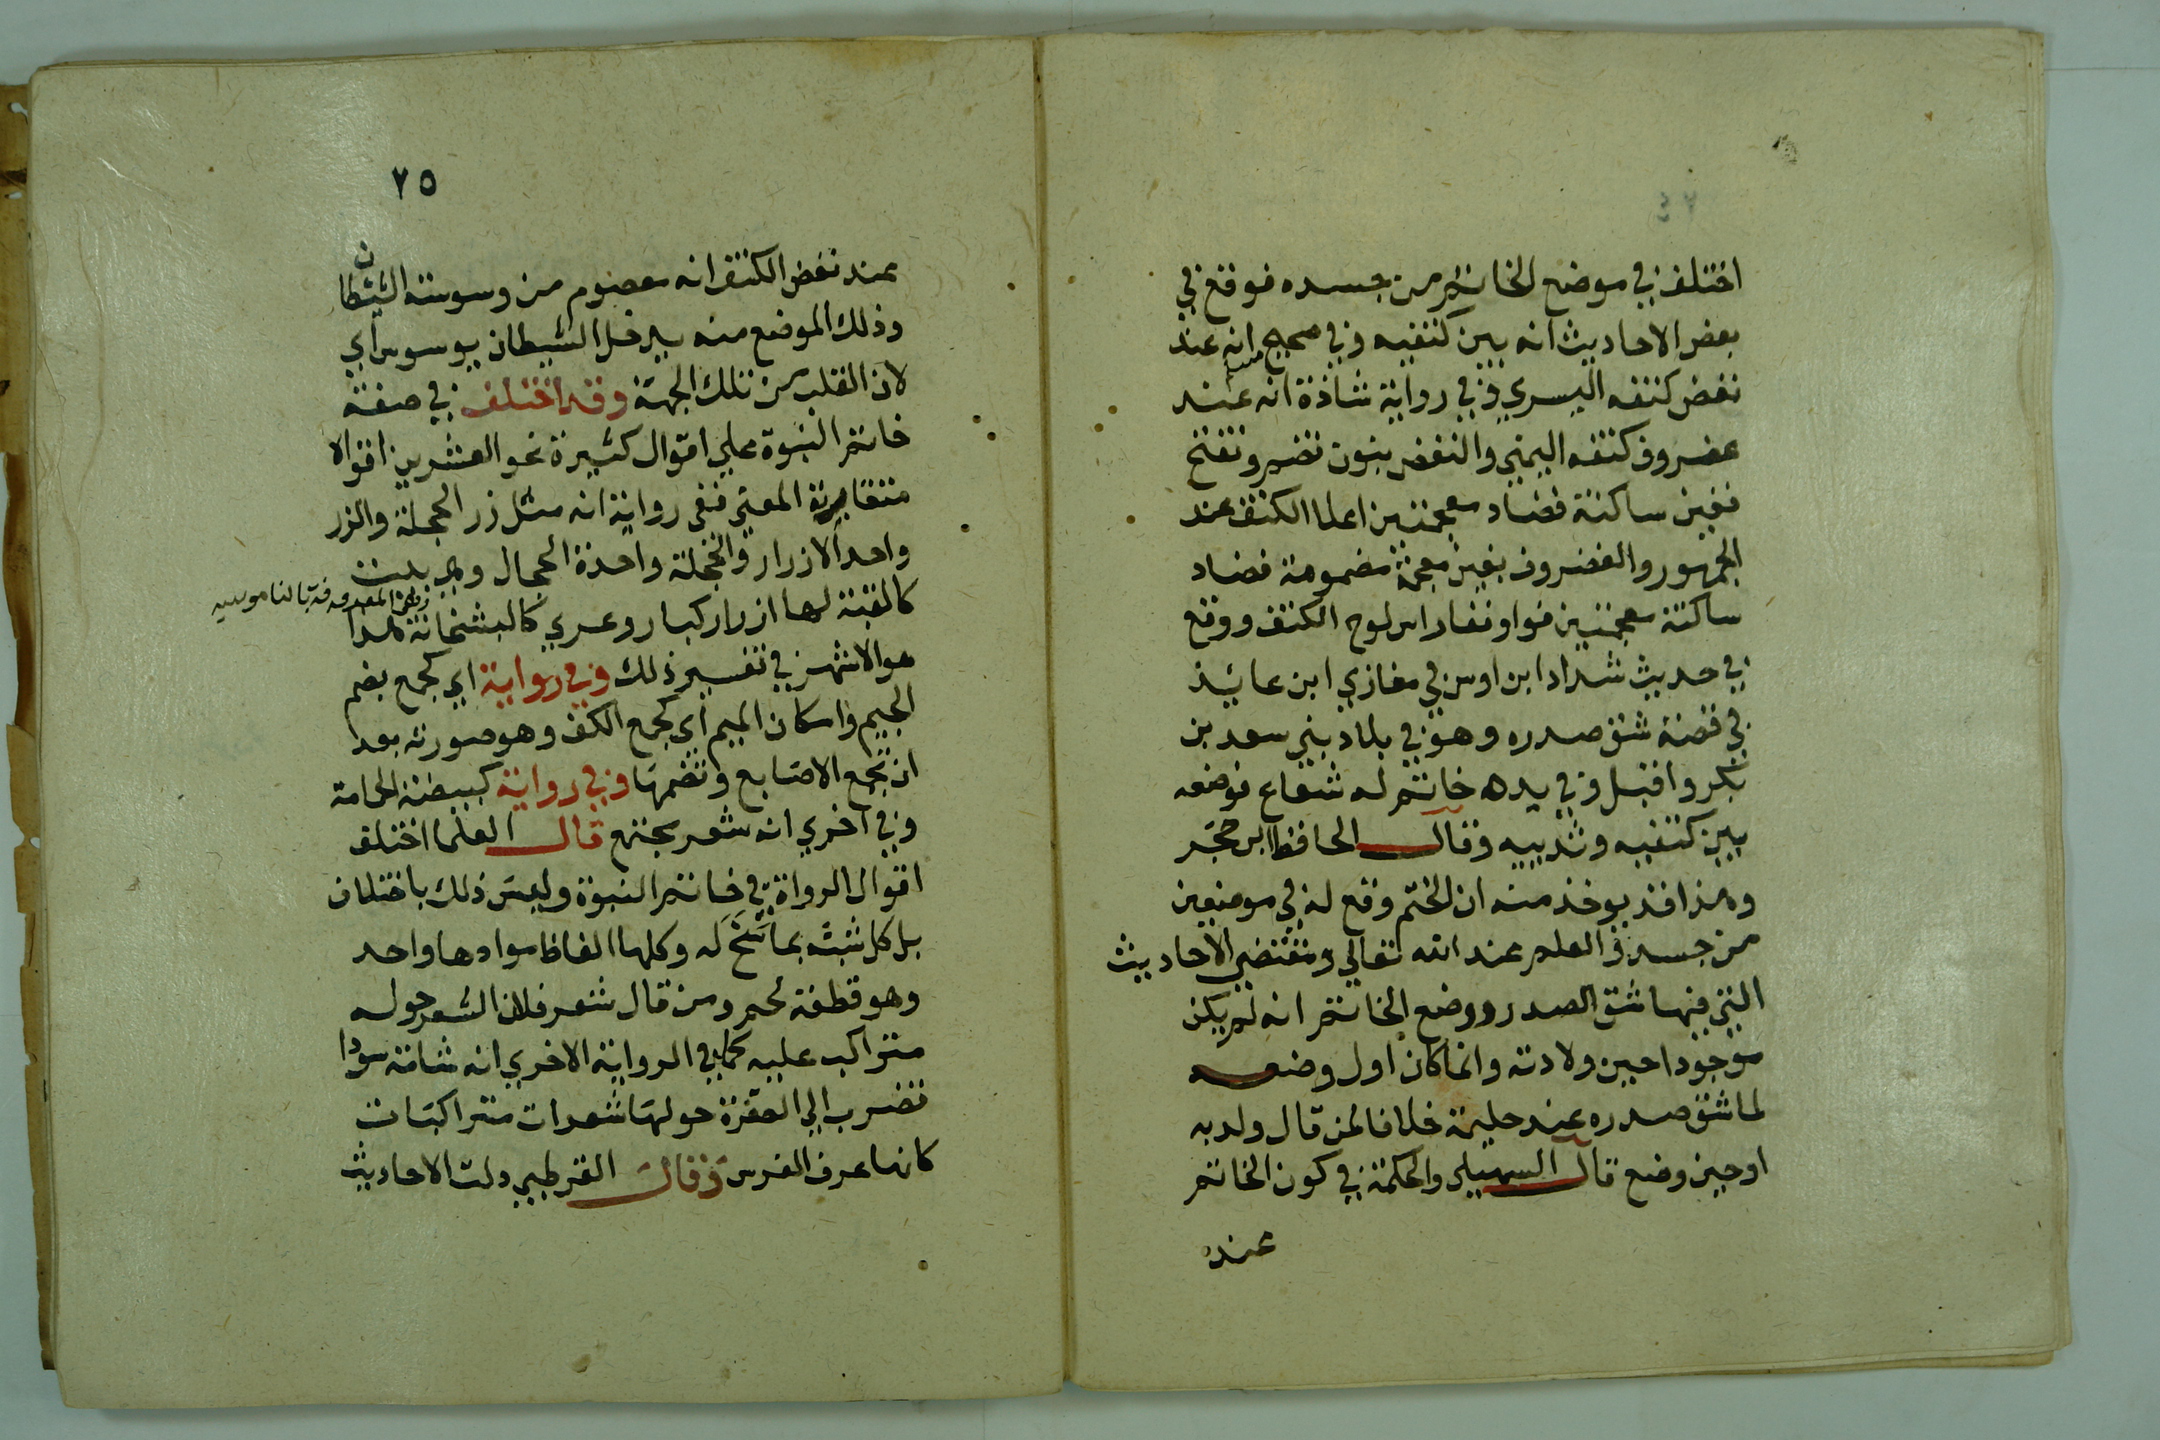 اختلف في موضع الخاتم من جسده فوقع في
بعض الاحاديث انه بين كتفيه وفي صحيح مسلم انه عند
نغض كتفه اليسري وفي رواية شاذة انه عند
غضروف كتفه اليمني والنغض بنون تضم وتفتح
فغين ساكنة فضاد معجمتين اعلا الكتف عند
الجمهور والغضروف بغين معجمة مضمومة فضاد
ساكنة معجمتين فواو ففا راس لوح الكتف ووقع
في حديث شداد ابن اوس في مغازي ابن عائذ
في قصة شق صدره وهو في بلاد بني سعد بن
بكر واقبل وفي يده خاتم له شعاع فوضعه
بين كتفيه وثدييه وقال الحافظ ابن حجر
وهذا قد يوخذ منه ان الختم وقع له في موضعين
من جسده والعلم عند الله تعالي ومقتضي الاحاديث
التي فيها شق الصدر ووضع الخاتم انه لم يكن
موجودا حين ولادته وانما كان اول وضعه
لما شق صدره عند حليمة خلافا لمن قال ولد به
او حين وضع قال السهيلي والحكمة في كون الخاتم
عند
٧٥
عند نغض الكتف انه معصوم من وسوسة الشيطان
وذلك الموضع منه يدخل الشيطان يوسوس اي
لان القلب من تلك الجهة وقد اختلف في صفة
خاتم النبوة علي اقوال كثيرة نحو العشرين اقوالا
متقاربة المعني ففي رواية انه مثل زر الحجلة والزر
واحد الازرار والحجلة واحدة الحجال وهي بيت
كالقبة لها ازرار كبار وعري كالبشخانة هذا
المعروفة بالناموسيه
هو الاشهر في تفسير ذلك وفي رواية اي كجمع بضم
الجيم واسكان الميم اي كجمع الكف وهو صورته بعد
ان تجمع الاصابع وتضمها وفي رواية كبيضة الحمامة
وفي اخري انه شعر مجتمع قال العلما اختلف
اقوال الرواة في خاتم النبوة وليس ذلك باختلاف
بل كل شبه بما سنح له وكلها الفاظ موادها واحد
وهو قطعة لحم ومن قال شعر فلان الشعر حوله
متراكب عليه كما في الرواية الاخري انه شامة سودا
تضرب الي الصفرة حولها شعرات متراكبات
كانها عرف الفرس وقال القرطبي دلت الاحاديث